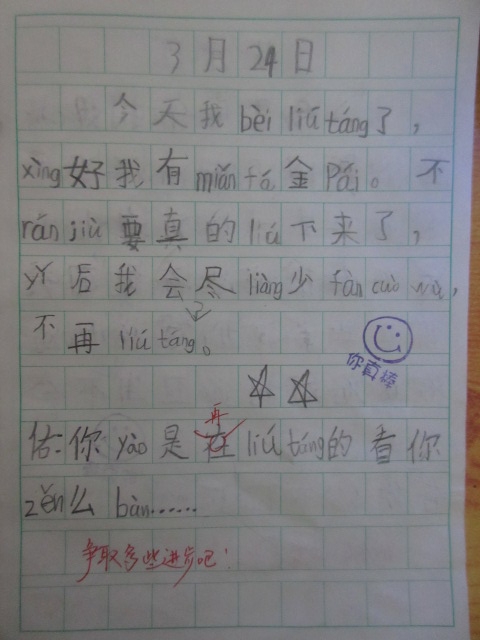 3月24日
今天我bèi liú táng了，
xìng好我有miǎn fá金Pái。不
rán jiù要真的liú下来了，
yǐ后我会尽liàng少fàn cuò wù，
不再liú táng。
你真棒
再
你yào是在liú táng的看你
zěn么bàn……
争取多些进步吧！